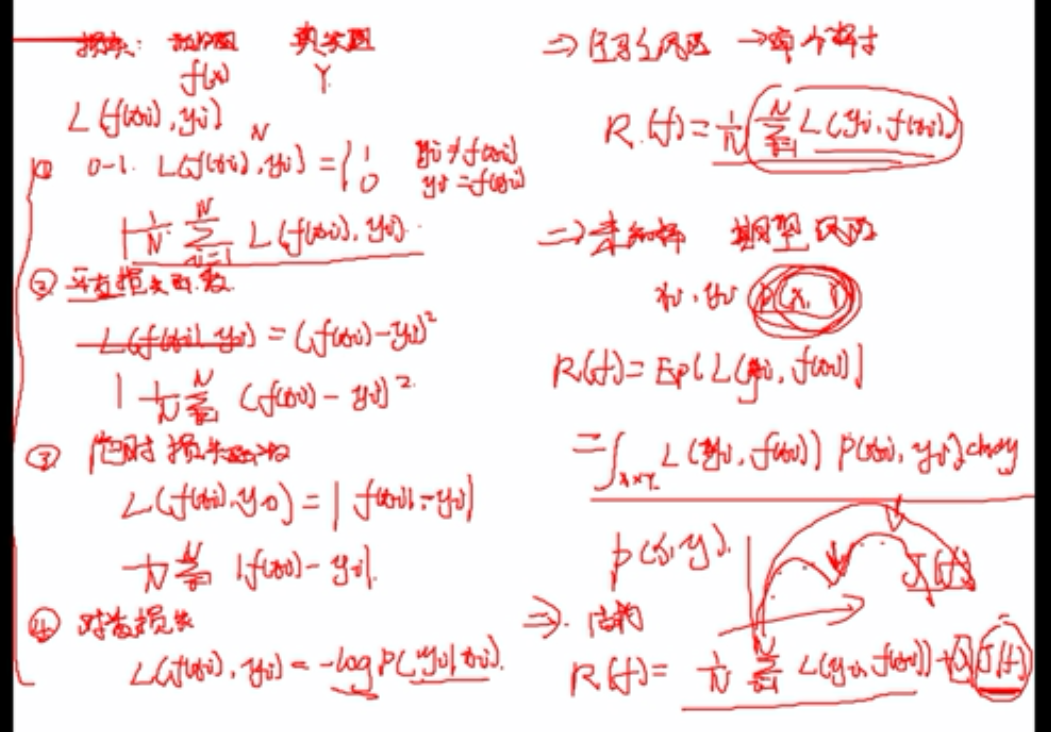 损失: 预测值 真实值
f(x) Y
L(f(xi), yi)
N
① 0-1. L(f(xi), yi) = { 1 yi ≠ f(xi)
0 yi = f(xi)
1/N ∑_{i=1}^{N} L(f(xi), yi).
② 平方损失函数.
L(f(xi), yi) = (f(xi) - yi)²
1/N ∑^{N} (f(xi) - yi)².
③ 绝对损失函数
L(f(xi), yi) = | f(xi) - yi |
1/N ∑^{N} |f(xi) - yi|.
④ 对数损失
L(f(xi), yi) = -log P(yi|xi).
⇒ 经验风险 →
R(f) = 1/N ∑_{i=1}^{N} L(yi, f(xi))
⇒ 期望风险
xi, yi P(X, Y)
R(f) = Ep[L(yi, f(xi))]
= ∫_{X×Y} L(yi, f(xi)) P(xi, yi) dxdy
p(x, y).
J(f)
⇒. 结构
R(f) = 1/N ∑_{i=1}^{N} L(yi, f(xi)) + λ J(f)